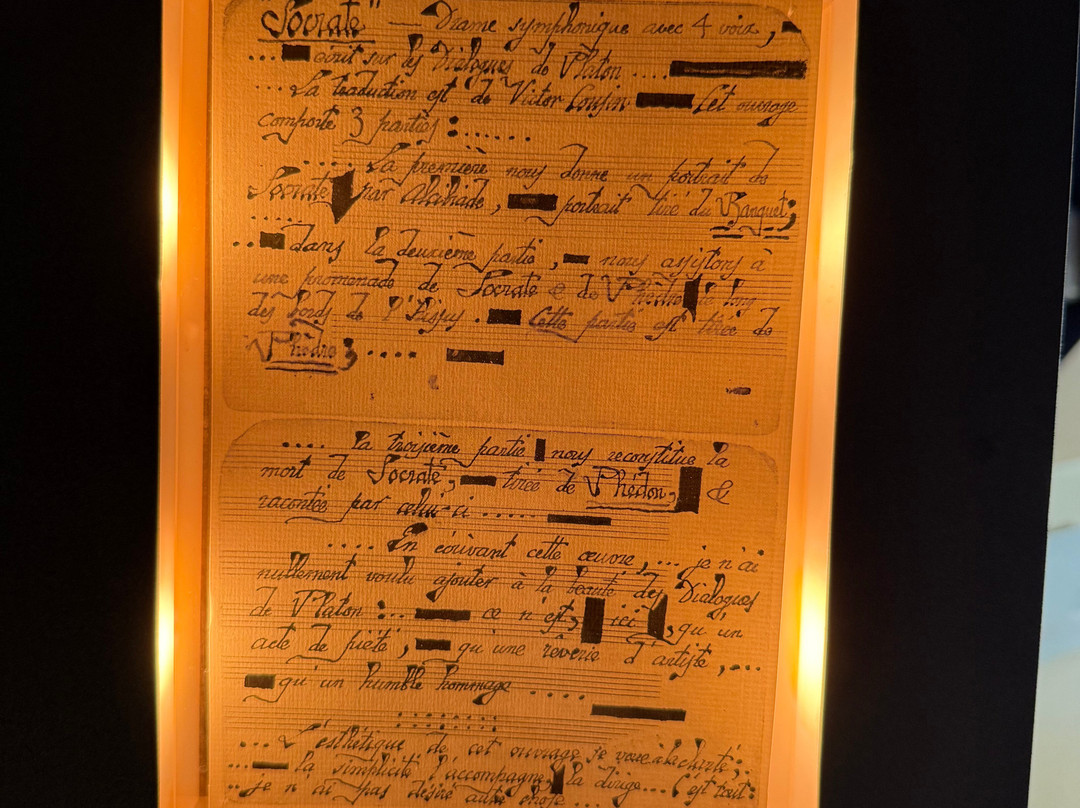 "Socrate" — Drame symphonique avec 4 voix,
... écrit sur les Dialogues de Platon ....
.... La traduction est de Victor Cousin Cet ouvrage
comporte 3 parties : ......
..... La première nous donne un portrait de
Socrate par Alcibiade, portrait tiré du Banquet;
.....
.. dans la deuxième partie, nous assistons à
une promenade de Socrate & de Phèdre le long
des bords de l'Ilissus. Cette partie est tirée de
Phèdre; ....
.... la troisième partie nous reconstitue la
mort de Socrate, tirée de Phédon, &
racontée par celui-ci .....
.... En écrivant cette œuvre, ... je n'ai
nullement voulu ajouter à la beauté des Dialogues
de Platon : ... ce n'est, ici, qu'un
acte de piété, qu'une rêverie d'artiste, ...
qu'un humble hommage ....
... L'esthétique de cet ouvrage je voue à la clarté;.
.. la simplicité l'accompagne, la dirige... C'est tout:
.. je n'ai pas désiré autre chose ...